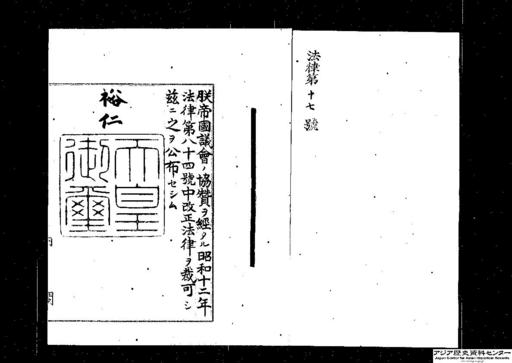 法律第十七號
朕帝國議會ノ協贊ヲ經タル昭和十二年
法律第八十四號中改正法律ヲ裁可シ
茲ニ之ヲ公布セシム
裕仁
天皇
御璽
アジア歴史資料センター
Japan Center for Asian Historical Records